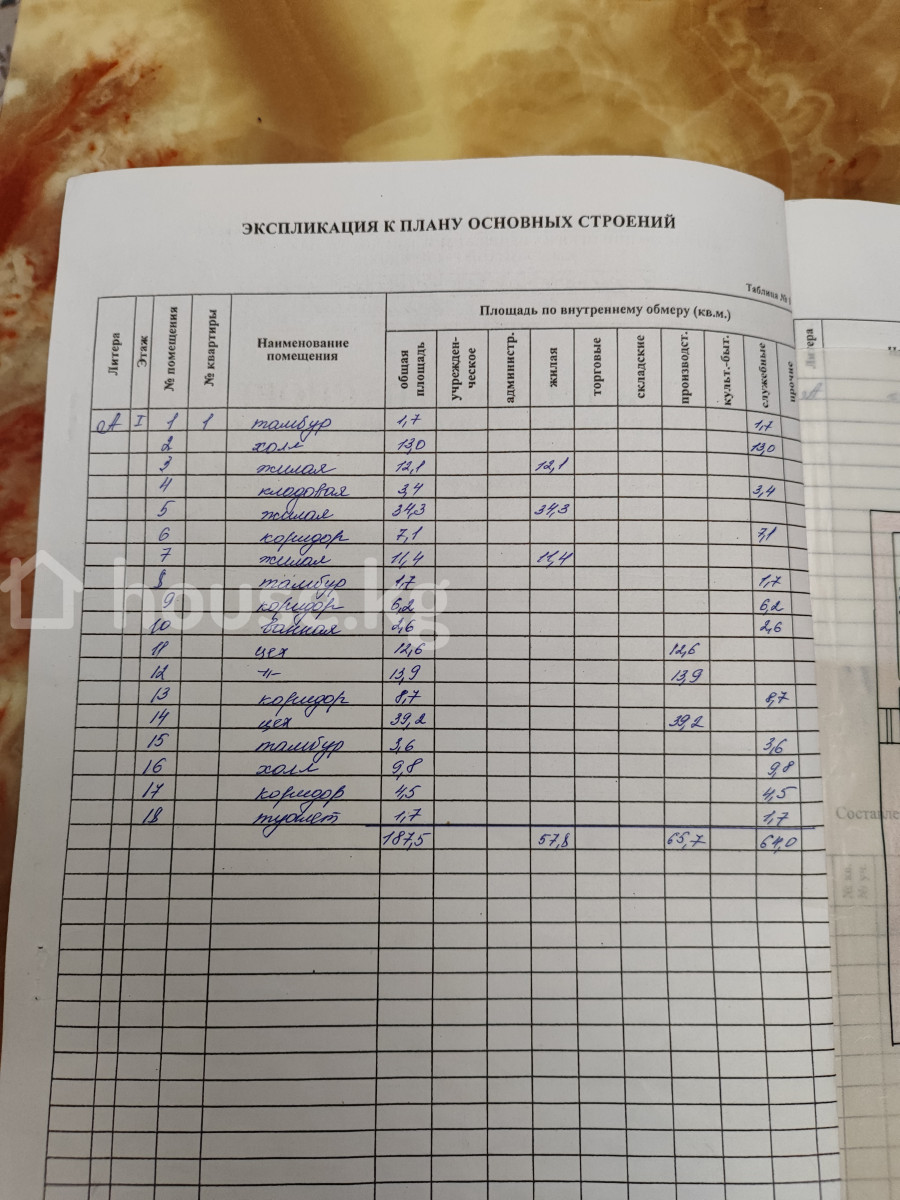 ЭКСПЛИКАЦИЯ К ПЛАНУ ОСНОВНЫХ СТРОЕНИЙ
Таблица №
Литера Этаж № помещения № квартиры Наименование помещения Площадь по внутреннему обмеру (кв.м.)
общая площадь учрежден-ческое администр. жилая торговые складские производст. культ.-быт. служебные прочие
А I 1 1 тамбур 1,7 1,7
2 холл 13,0 13,0
3 жилая 12,1 12,1
4 кладовая 3,4 3,4
5 жилая 34,3 34,3
6 коридор 7,1 7,1
7 жилая 11,4 11,4
8 тамбур 1,7 1,7
9 коридор 6,2 6,2
10 ванная 2,6 2,6
11 цех 12,6 12,6
12 -//- 13,9 13,9
13 коридор 8,7 8,7
14 цех 39,2 39,2
15 тамбур 3,6 3,6
16 холл 9,8 9,8
17 коридор 4,5 4,5
18 туалет 1,7 1,7
187,5 57,8 65,7 64,0
house.kg
Литера
А
Составле
№ кв.
№ уч.